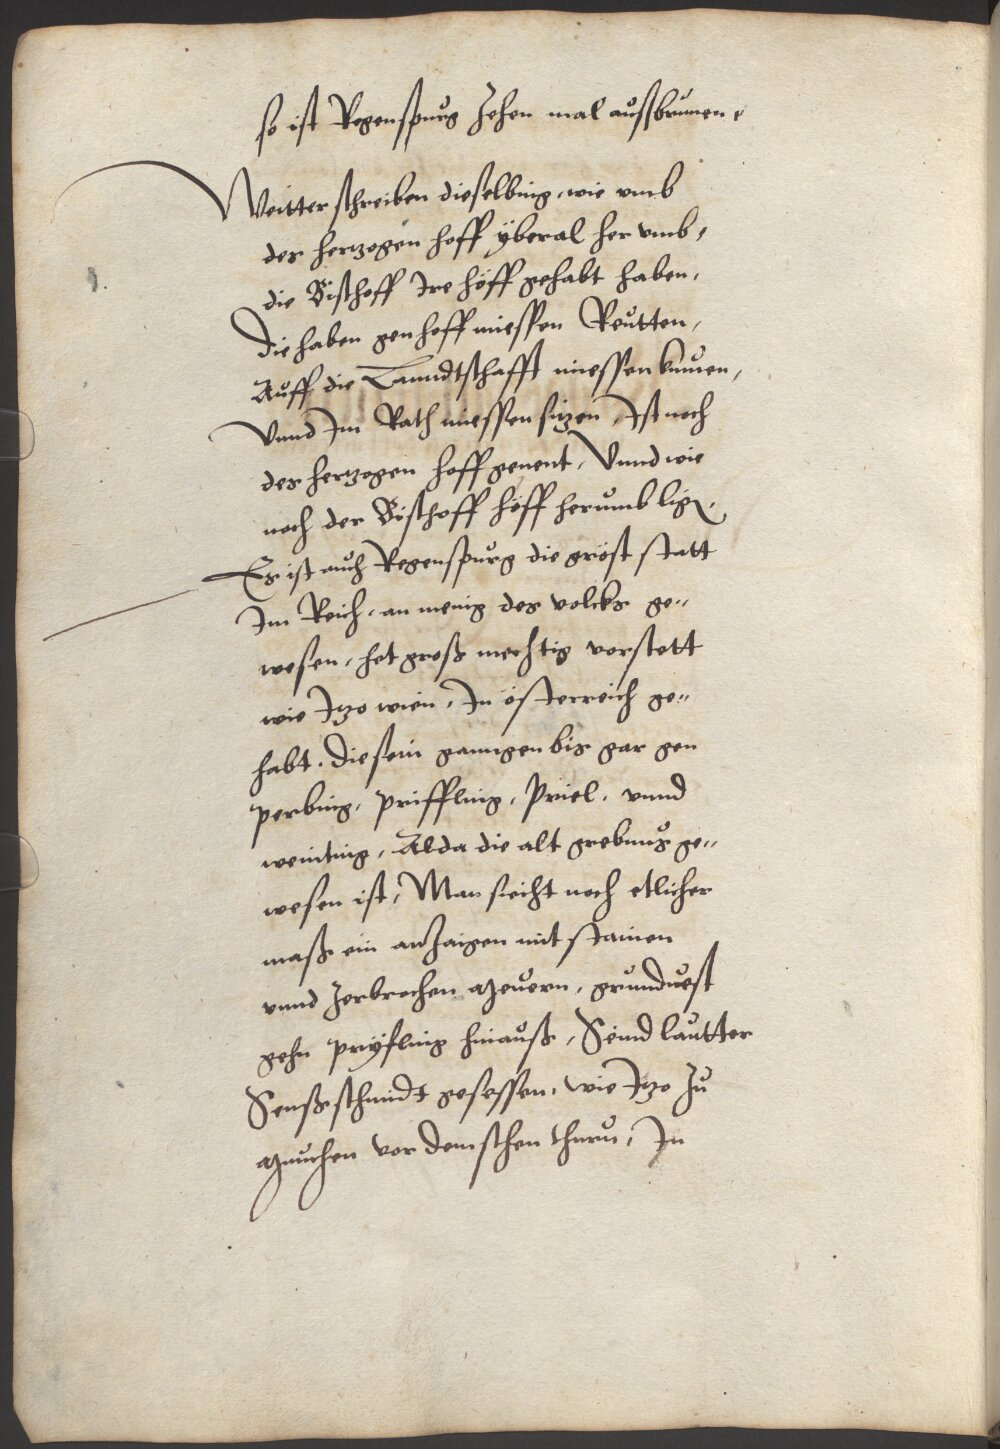 so ist Regenspurg zehen mal ausbrunen,
Weitter schreiben dieselbing, wie vmb
des hertzogen hoff yberal her vmb,
die Bischoff Ire höff gehabt haben,
die haben gen hoff miessen Reutten,
Auff die Lanndtschafft miessen kumen,
Vnnd Im Rath miessen sitzen, Ist noch
des hertzogen hoff genent, Vnnd wie
noch der Bischoff höff herumb lign,
Es ist auch Regenspurg die gröst statt
Im Reich, an menig des volcks ge„
wesen, hat groß mechtig vorstett
wie Itzo wien, In össterreich ge„
habt. die sein ganngen bis gar gen
perbing, priffling, Priel, vnnd
weinting, Alda die alt grebnus ge„
wesen ist, Man siecht noch etlicher
maß ein anzaigen mit stainen
vnnd zerbrochen Meuern, grunduest
gehn pryfling hinauß, Seind lautter
Senßschmidt gesessen, wie Itzo zu
Munchen vor dem schen thurn, In